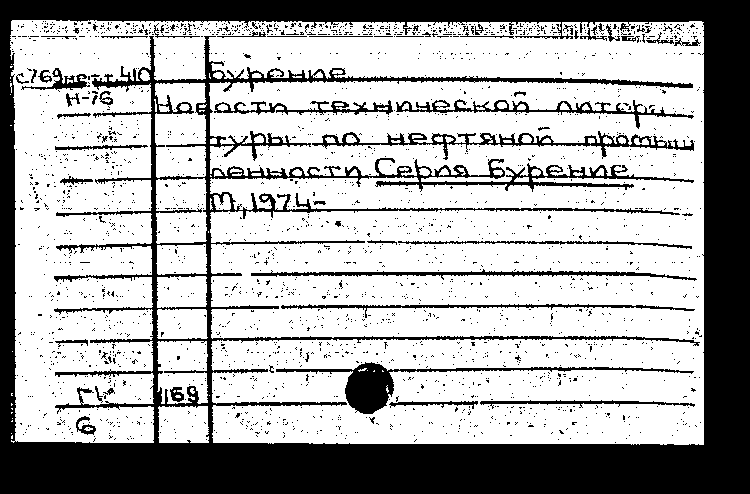 с769нефт.410 Бурение
Н-76 Новости технической литера
туры по нефтяной промыш
ленности Серия Бурение
М., 1974-
1169
6